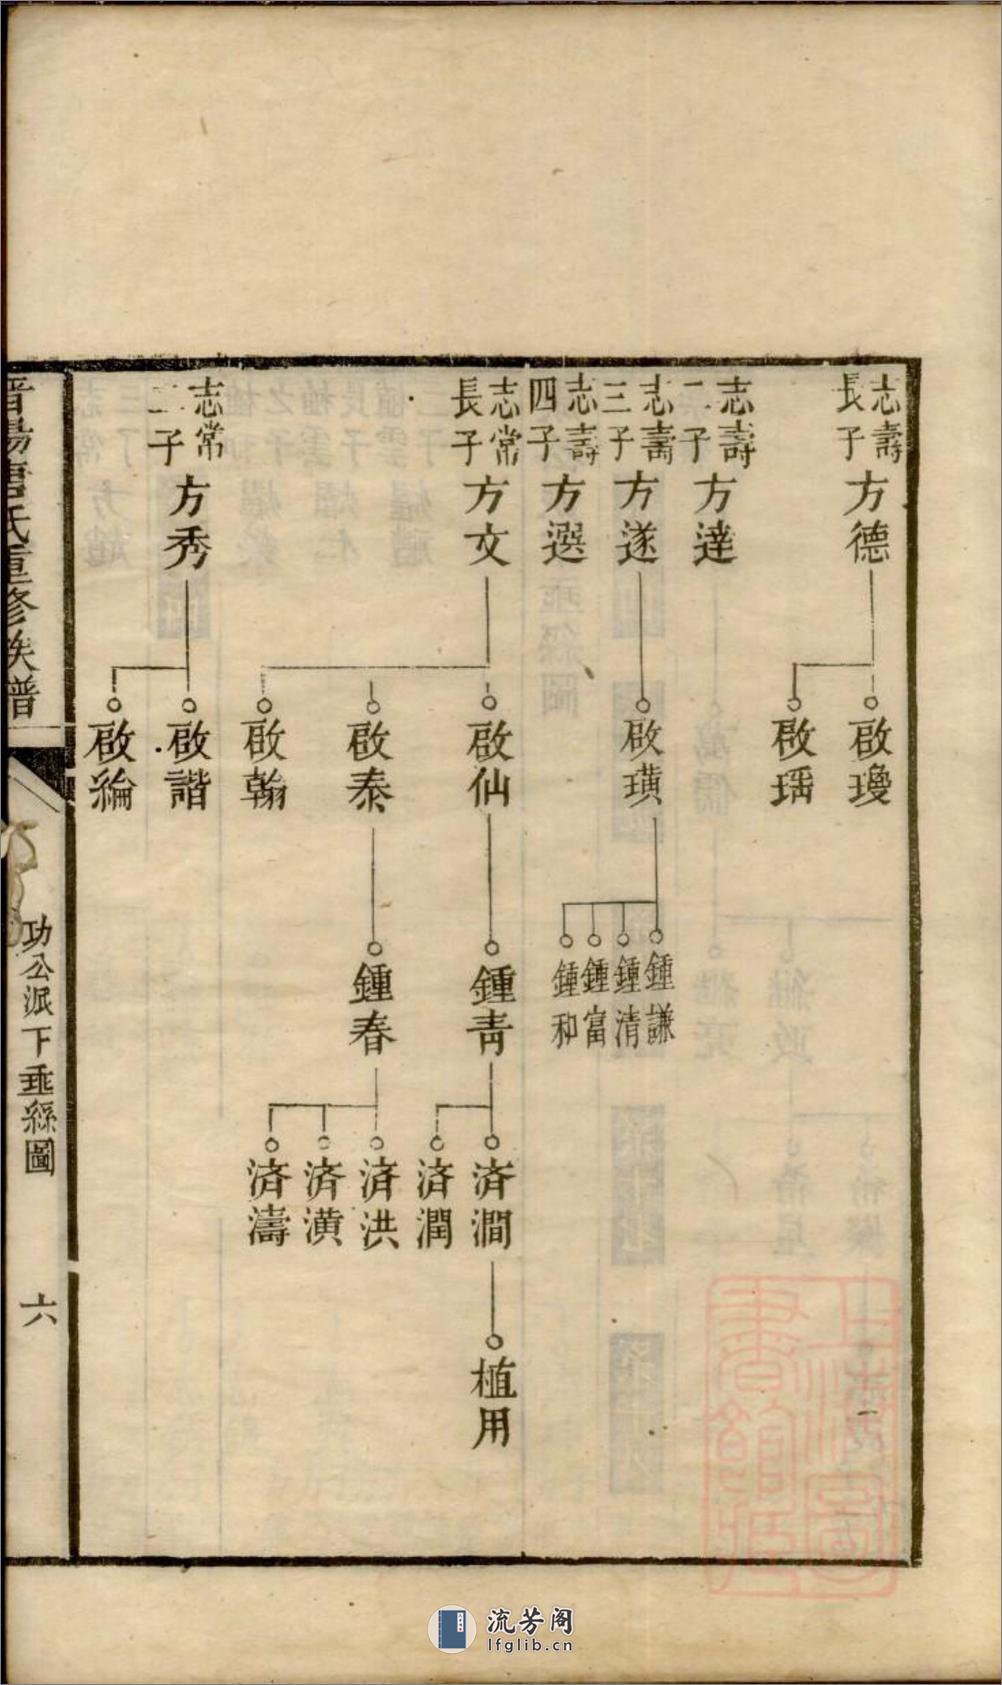 志壽
長子
方德
啟瓊
啟瑀
志壽
二子
方達
志壽
三子
方遂
啟璜
鍾謙
鍾清
鍾富
鍾和
志壽
四子
方選
志常
長子
方文
啟仙
鍾青
済澗
植用
済潤
啟泰
鍾春
済洪
済潢
済濤
啟翰
志常
二子
方秀
啟諧
啟綸
晋陽唐氏重修族譜
功公派下垂絲圖
六
上海图書館藏
流芳阁
lfglib.cn